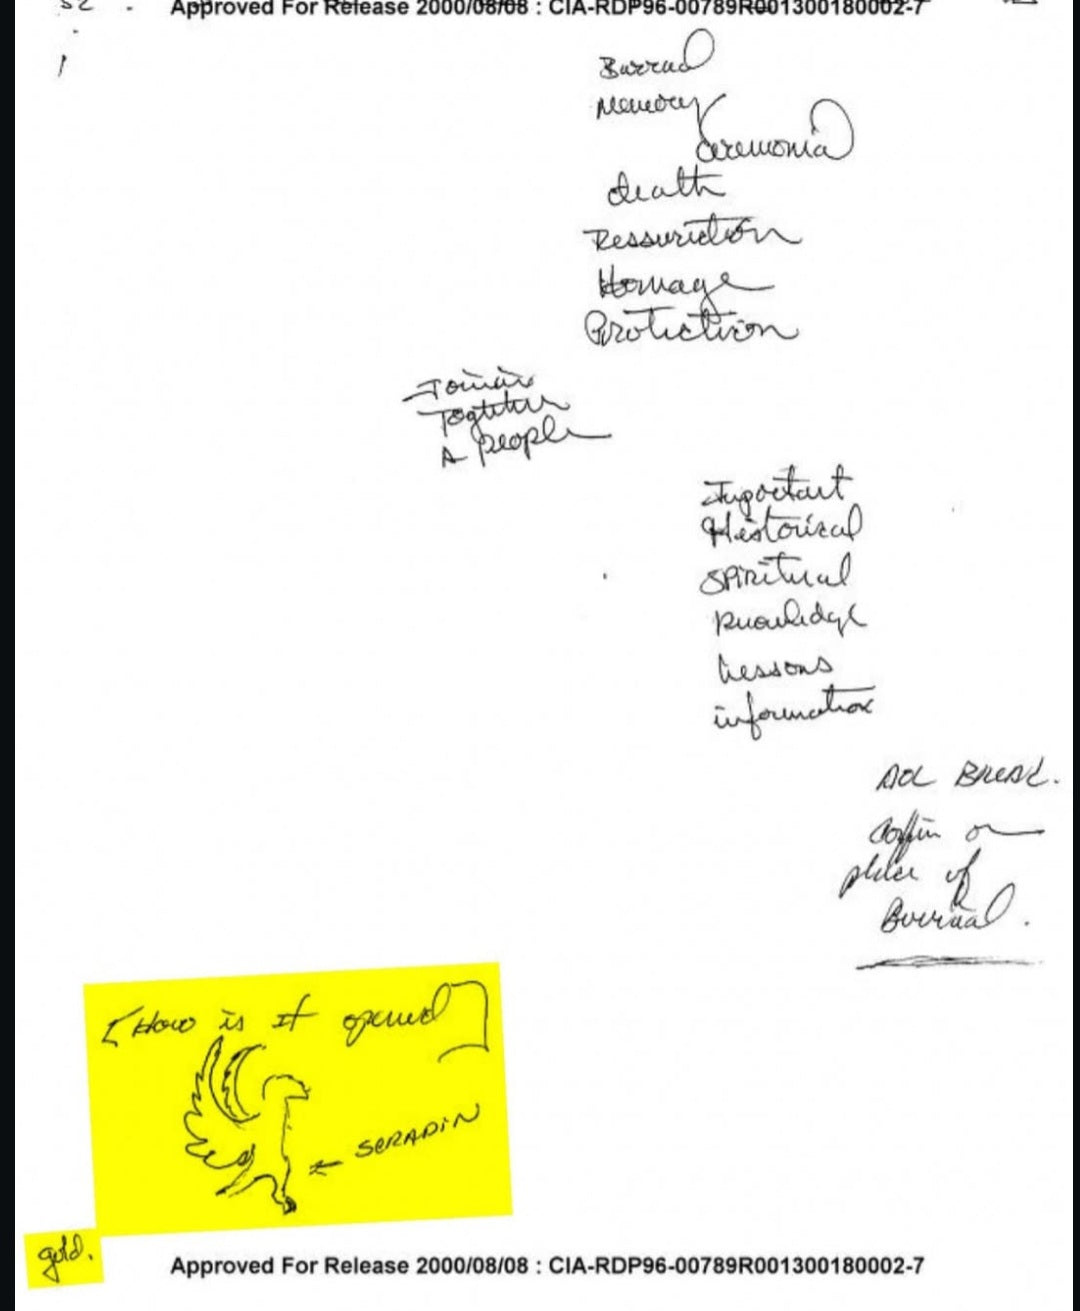 Approved For Release 2000/08/08 : CIA-RDP96-00789R001300180002-7
Burrial
Memory
Ceremonial
death
Ressuriction
Homage
Protiction
Joining
Together
A people
Important
Historical
SPiritual
Knowledge
Lessons
information
AOL BREAK.
Coffin or
place of
Burrial.
[How is it opened]
← SERAPIN
gold.
Approved For Release 2000/08/08 : CIA-RDP96-00789R001300180002-7